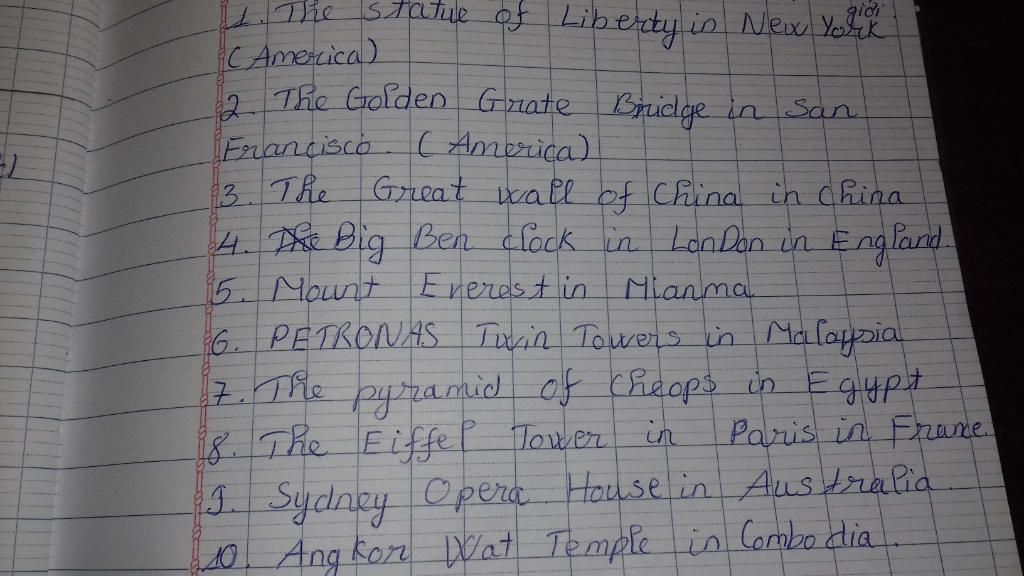 giới
1. The statue of Liberty in New York
(America)
2. The Golden Grate Bridge in San
Francisco. (America)
3. The Great wall of China in China
4. The Big Ben clock in LonDon in England.
5. Mount Everest in Mianma
6. PETRONAS Twin Towers in Malaysia
7. The pyramid of Cheops in Egypt
8. The Eiffel Tower in Paris in Frane.
9. Sydney Opera House in Australia
10. Angkor Wat Temple in Combodia.